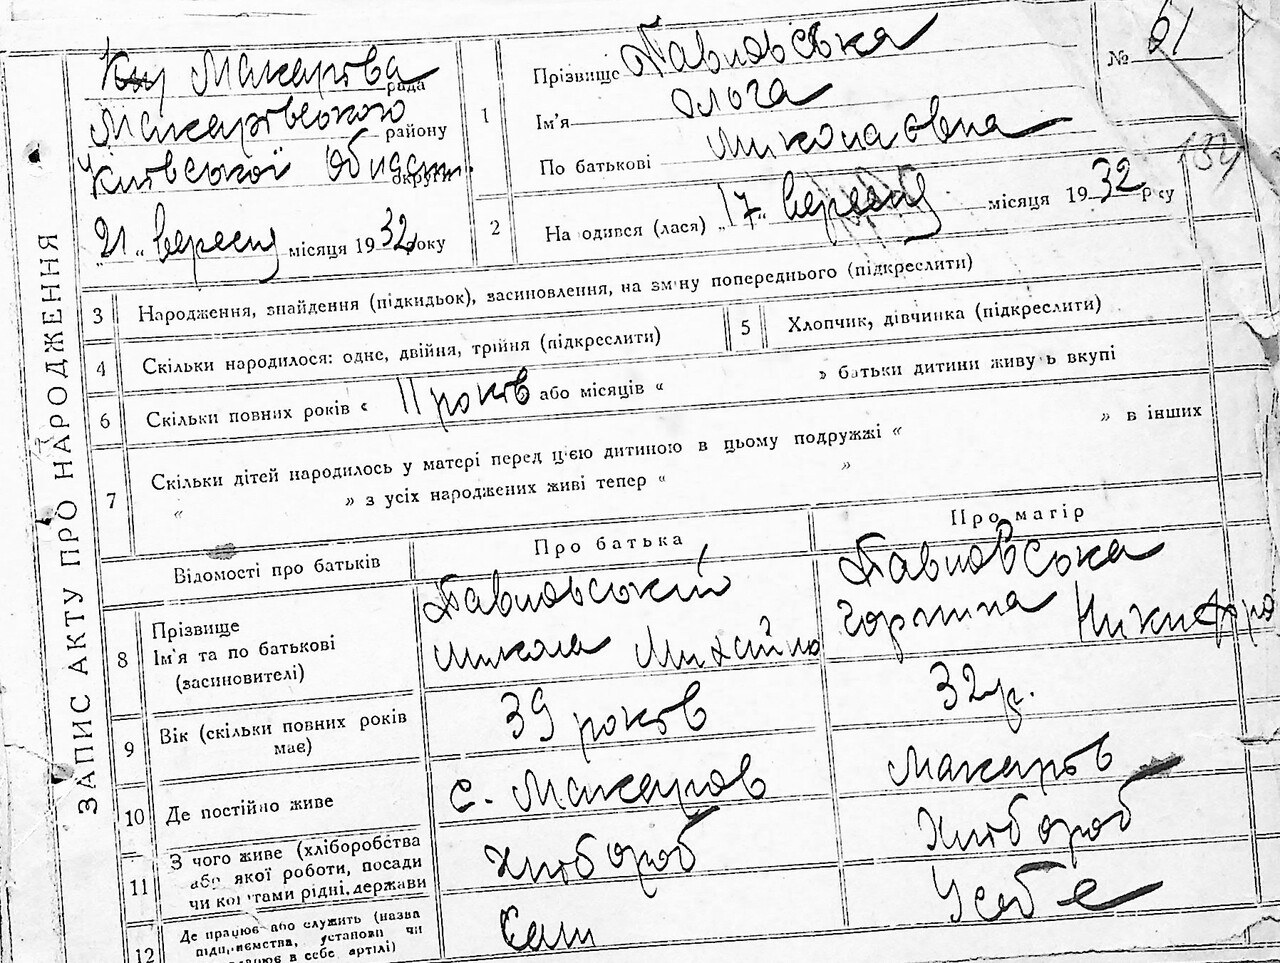 ЗАПИС АКТУ ПРО НАРОДЖЕННЯ
Макарівська рада
Макарівського району
Київської області округи
„21“ вересня місяця 1932 року
1
Прізвище Павловська
Ім'я Ольга
По батькові Миколаєвна
№ 61
184
2
На одився (лася) „17“ вересня місяця 1932 р ку
3 Народження, знайдення (підкидьок), засиновлення, на зміну попереднього (підкреслити)
4 Скільки народилося: одне, двійня, трійня (підкреслити)
5 Хлопчик, дівчинка (підкреслити)
6 Скільки повних років « 11 років або місяців « » батьки дитини живу ь вкупі
7 Скільки дітей народилось у матері перед цією дитиною в цьому подружжі « » в інших
« » з усіх народжених живі тепер « »
Відомості про батьків
Про батька
Про матір
8 Прізвище
Ім'я та по батькові
(засиновителі)
Павловський
Микола Михайло
Павловська
Горпина Никифоро
9 Вік (скільки повних років
має)
39 років
32 р.
10 Де постійно живе
с. Макаров
Макарів
11 З чого живе (хліборобства
або якої роботи, посади
чи коштами рідні, держави
Хлібороб
Хлібороб
12 Де працює або служить (назва
підприємства, установи чи
працює в себе артілі)
У себе